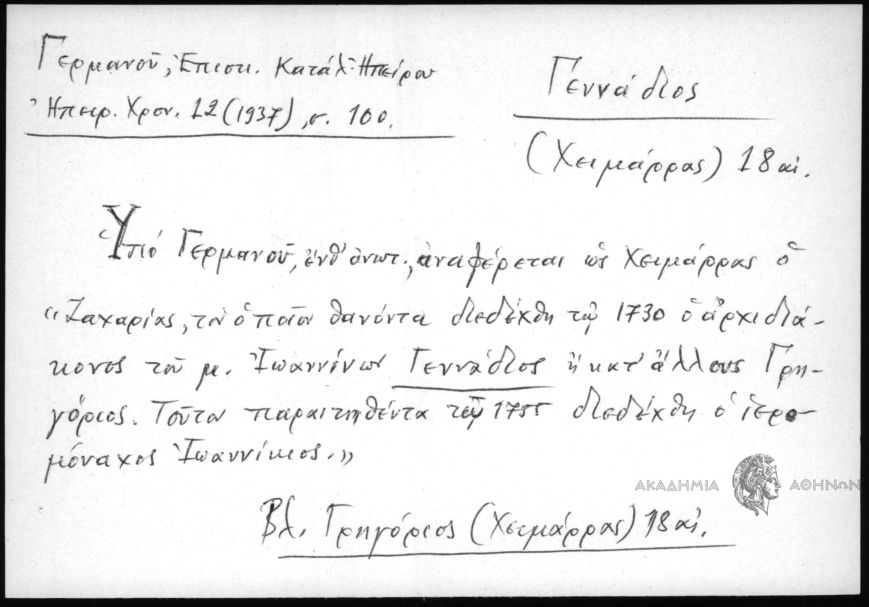 Γερμανοῦ, Ἐπισκ. Κατάλ. Ἠπείρου
Ἠπειρ. Χρον. 12 (1937), σ. 100.
Γεννάδιος
(Χειμάρρας) 18 αἰ.
Ὑπό Γερμανοῦ, ἐνθ' ἀνωτ., ἀναφέρεται ὡς Χειμάρρας ὁ
«Ζαχαρίας, τον ὁποῖον θανόντα διεδέχθη τῷ 1730 ὁ ἀρχιδιά-
κονος τοῦ μ. Ἰωαννίνων Γεννάδιος ἤ κατ' ἄλλους Γρη-
γόριος. Τοῦτον παραιτηθέντα τῷ 1755 διεδέχθη ὁ ἱερο-
μόναχος Ἰωαννίκιος.»
ΑΚΑΔΗΜΙΑ ΑΘΗΝΩΝ
Βλ. Γρηγόριος (Χειμάρρας) 18 αἰ.